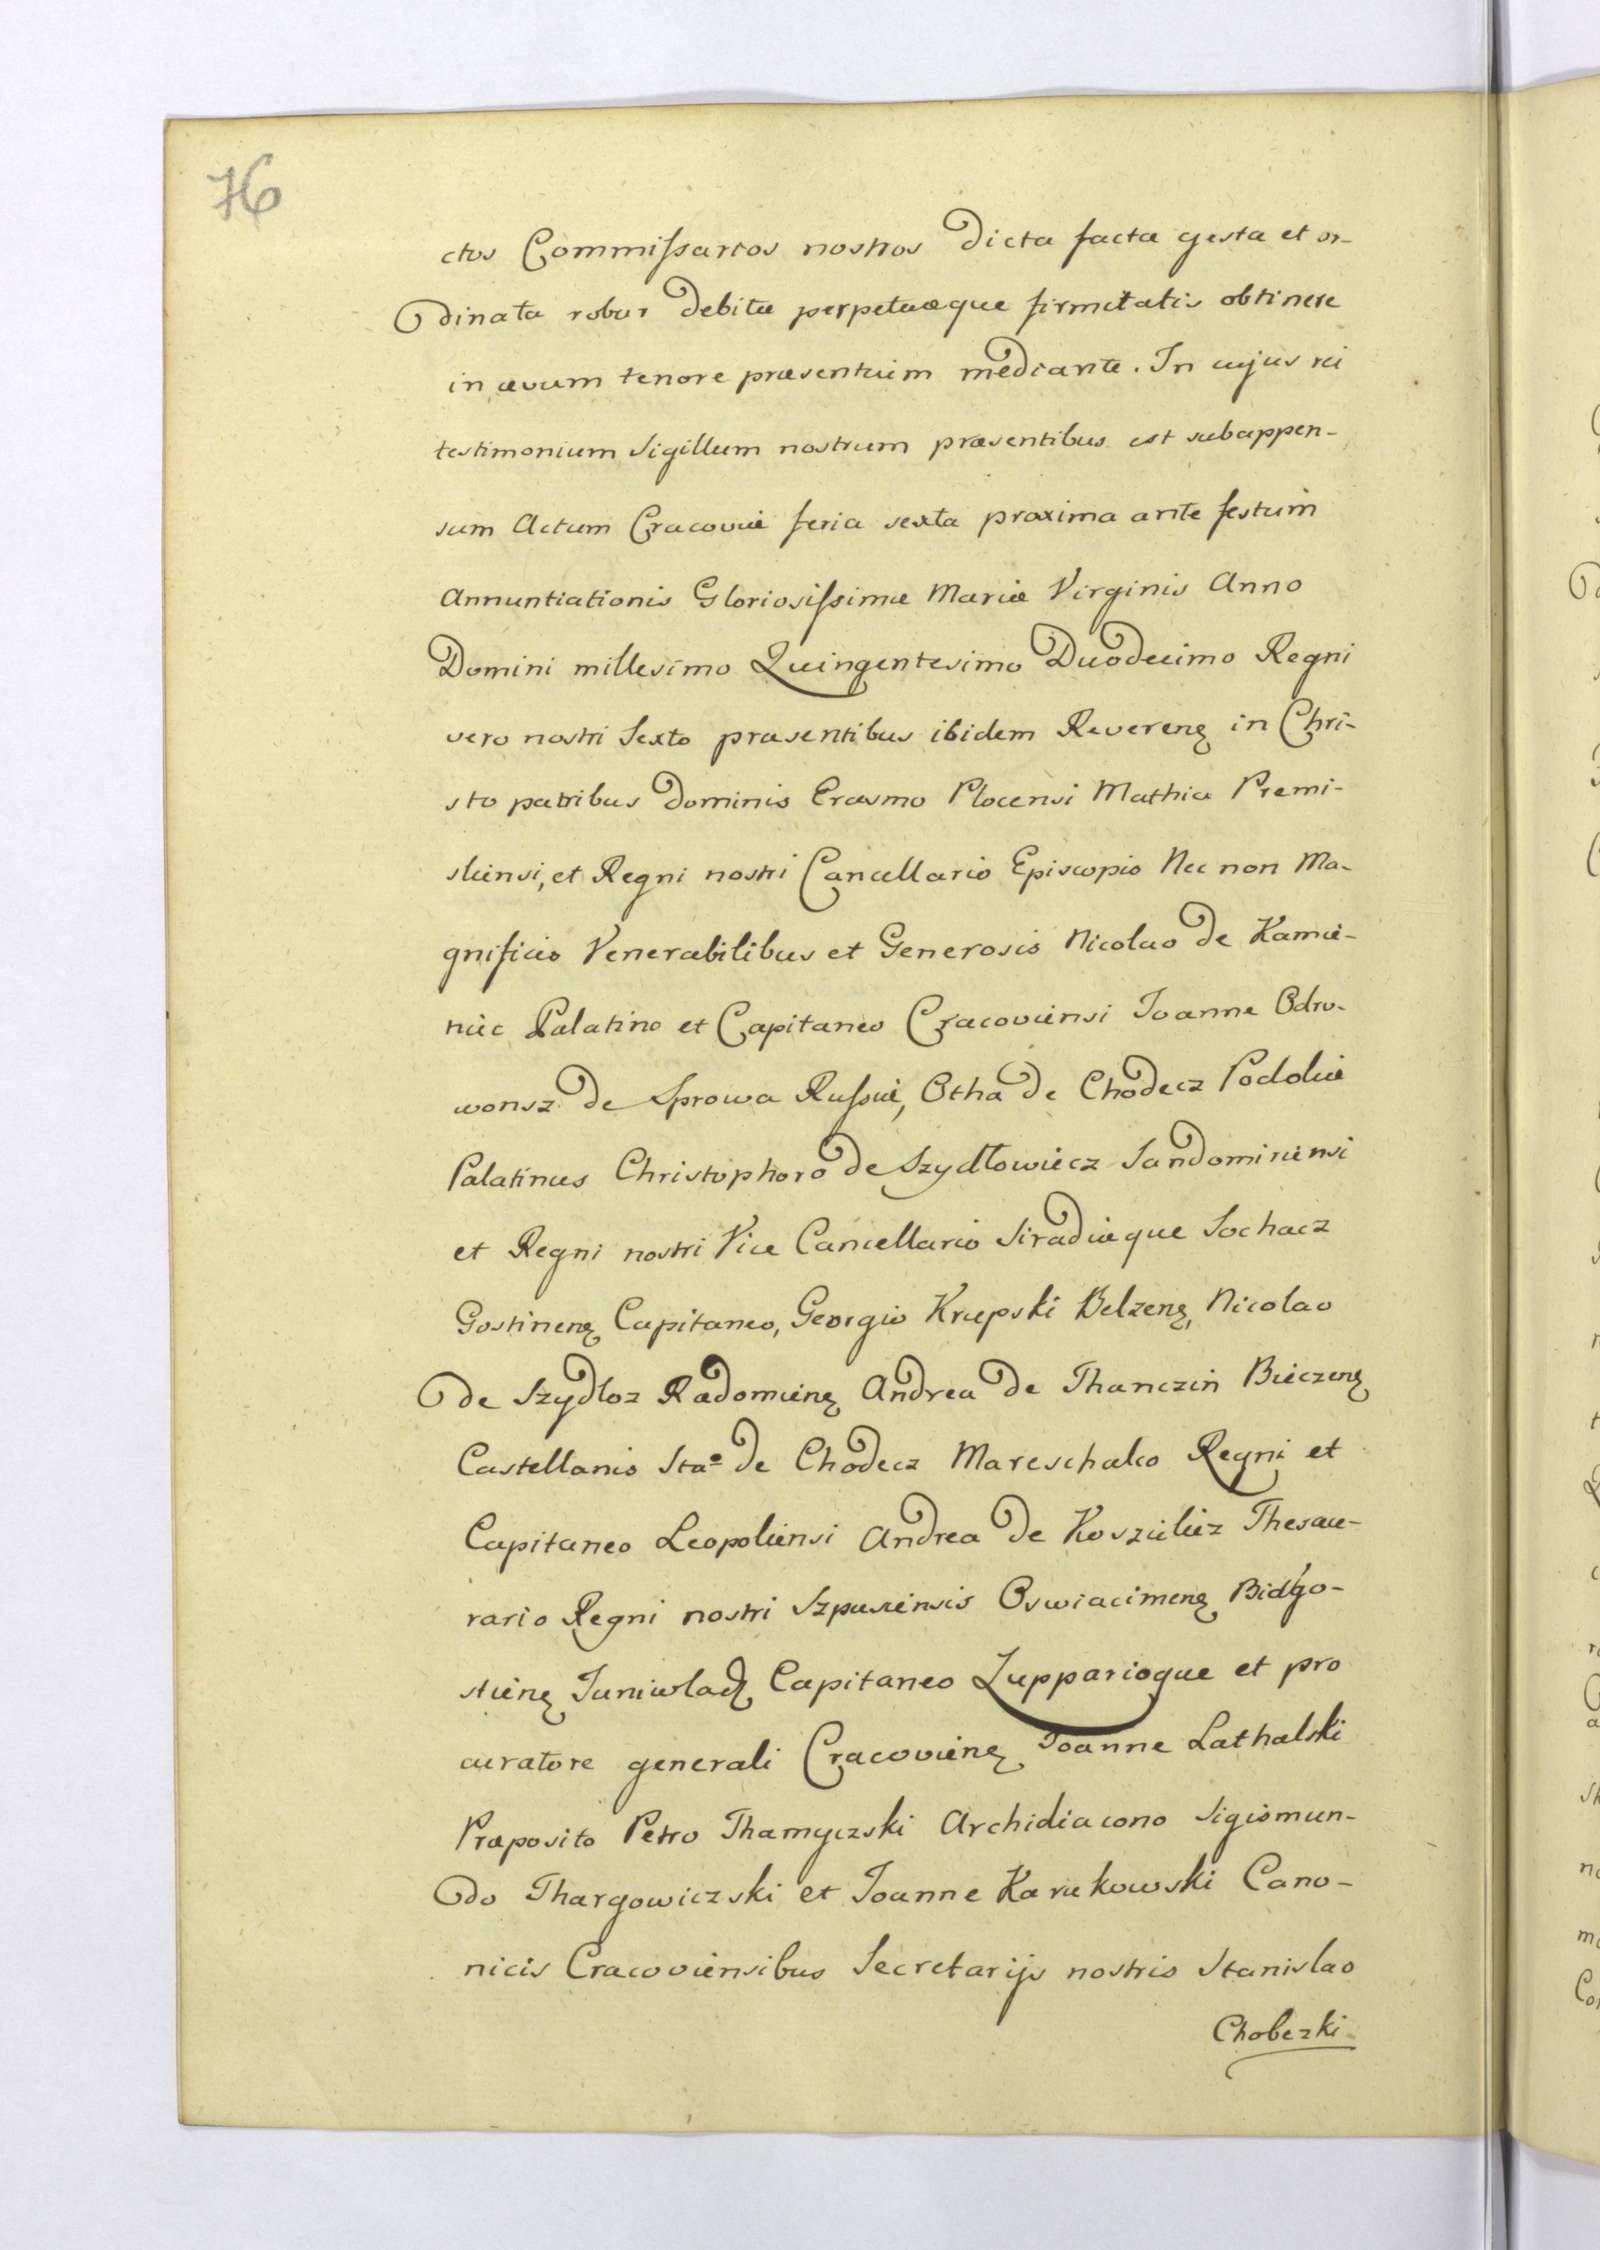 76
ctos Commissarios nostros dicta facta gesta et or-
dinata robur debitæ perpetuæque firmitatis obtinere
in ævum tenore præsentium mediante. In cujus rei
testimonium Sigillum nostrum præsentibus est subappen-
sum Actum Cracoviæ feria sexta proxima ante festum
Annuntiationis Gloriosissimæ Mariæ Virginis Anno
Domini millesimo Quingentesimo Duodecimo Regni
vero nostri Sexto præsentibus ibidem Reverenꝫ in Chri-
sto patribus Dominis Erasmo Plocensi Mathia Premi-
sliensi, et Regni nostri Cancellario Episcopis Nec non Ma-
gnificis Venerabilibus et Generosis Nicolao de Kamie-
niec Palatino et Capitaneo Cracoviensi Joanne Odro-
wonsz de Sprowa Russiæ, Otha de Chodecz Podoliæ
Palatinus Christophoro de Szydłowiecz Sandomiriensi
et Regni nostri Vice Cancellario Siradiæque Sochacz
Gostinenꝫ Capitaneo, Georgio Krupski Belzenꝫ, Nicolao
de Szydloz Radomienꝫ Andrea de Thanczin Bieczenꝫ
Castellanis Stao de Chodecz Mareschalco Regni et
Capitaneo Leopoliensi Andrea de Koszieliez Thesau-
rario Regni nostri Szpusiensis Oswiacimenꝫ Bidgo-
stienꝫ Juniwladꝫ Capitaneo Zupparioque et pro
curatore generali Cracovienꝫ Joanne Lathalski
Præposito Petro Thamyczski Archidiacono Sigismun-
do Thargowiczski et Joanne Karukowski Cano-
nicis Cracoviensibus Secretarijs nostris Stanislao
Chobezki